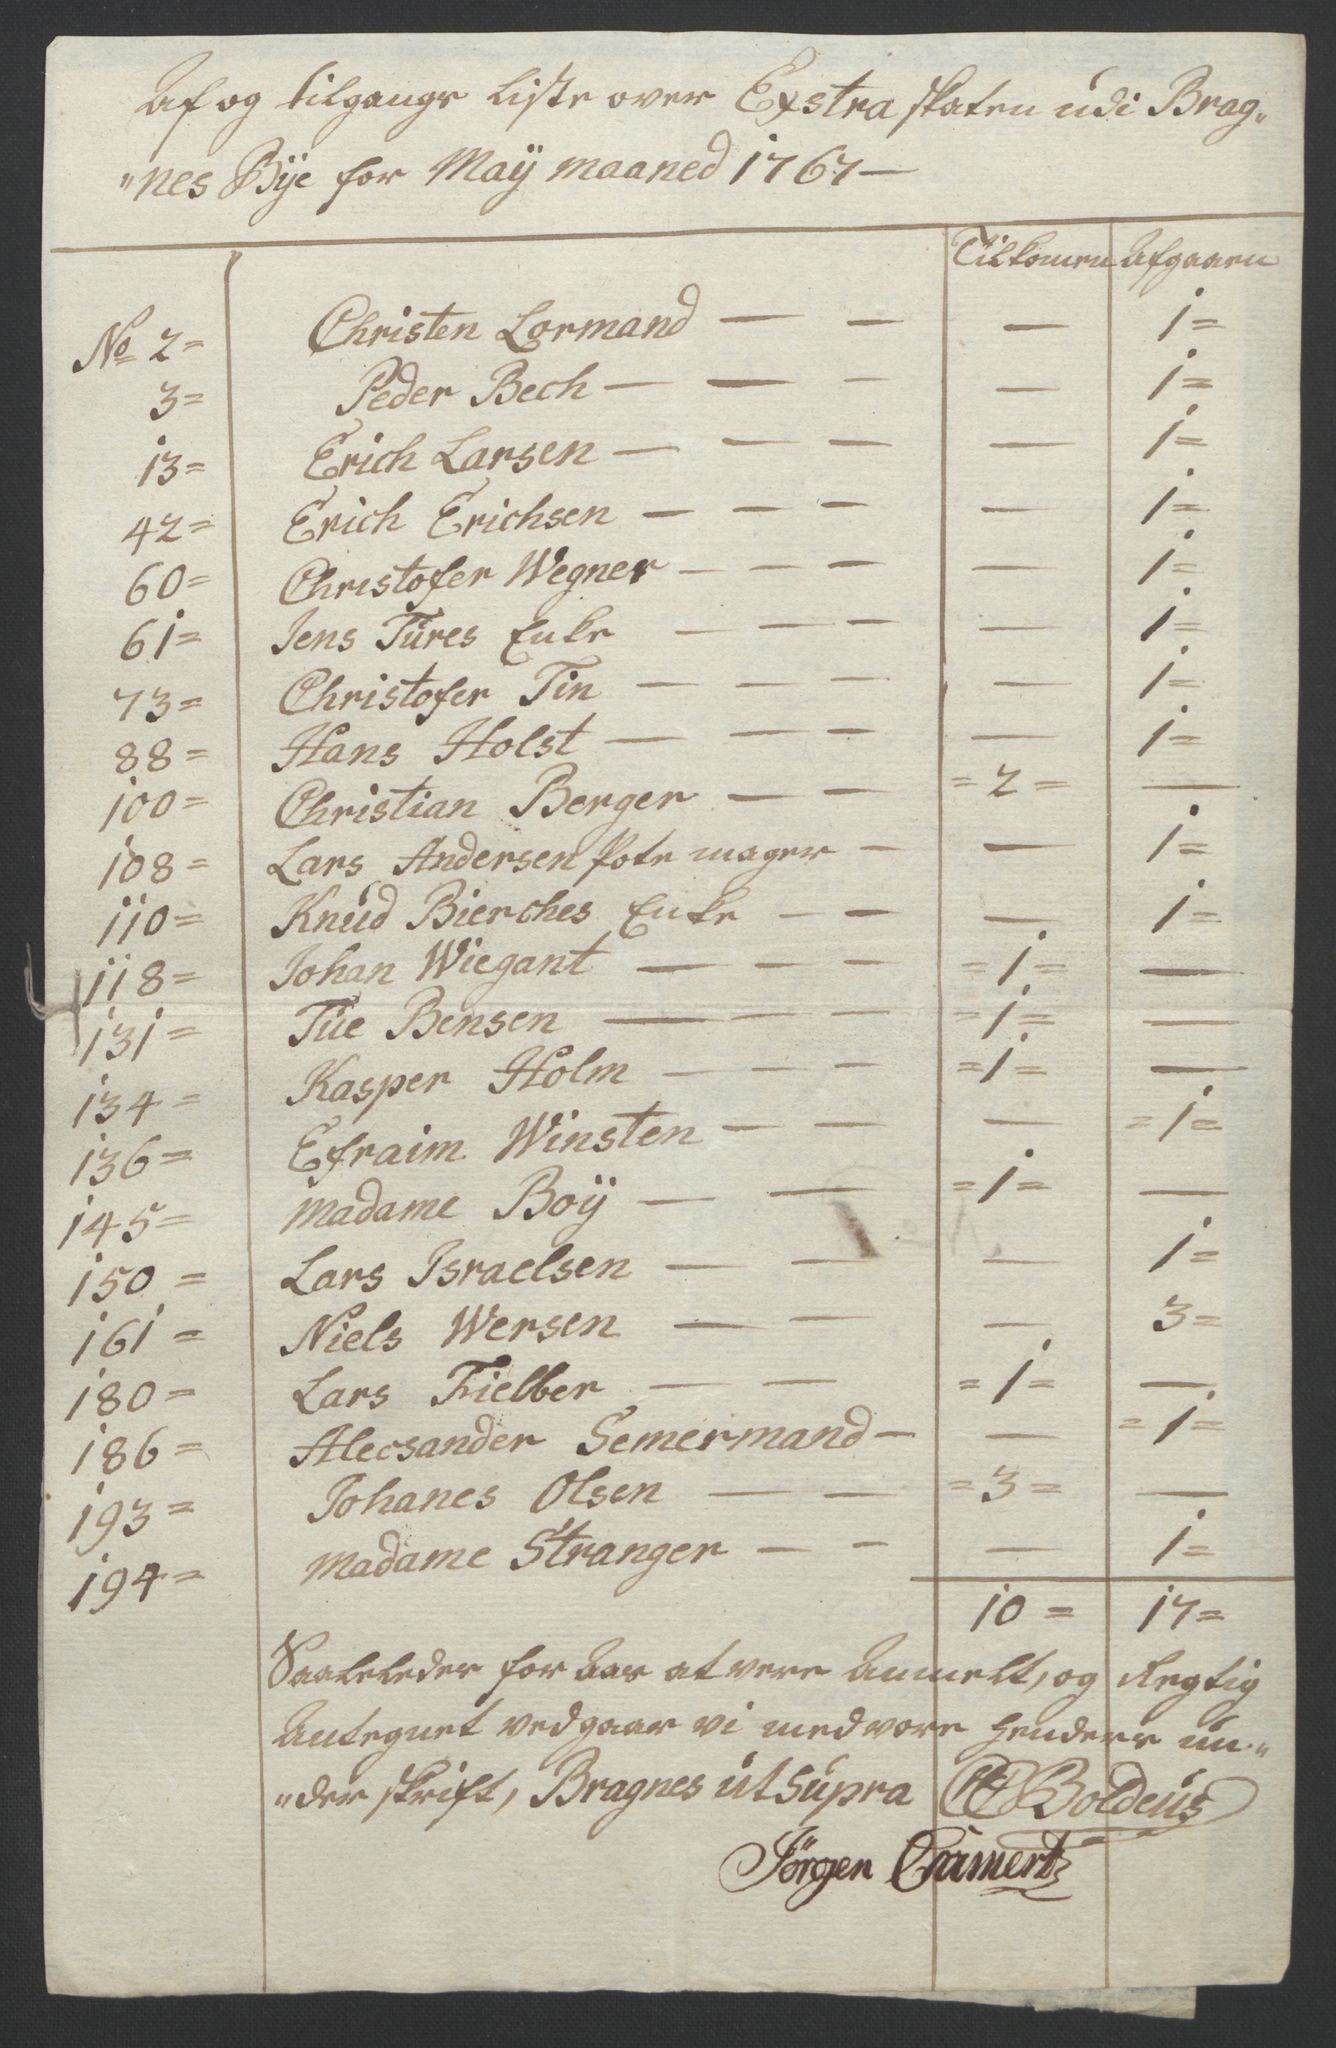 Af og tilgangs liste over Exstra skaten udi Brag„
„nes Bÿe for Maÿ maaned 1767—
Tilkomen Afgaaen
No 2= Christen Lormand — — — 1=
3= Peder Bech — — — — 1=
13= Erich Larsen — — — — 1=
42= Erich Erichsen — — — — 1=
60= Christofer Wegner — — — — 1=
61= Jens Türes Enke — — — — 1=
73= Christofer Tin — — — — 1=
88= Hans Holst — — — — 1=
100= Christian Berger — — =2= —
108= Lars Andersen Pote mager — — 1=
110= Knüd Bierches Enke — — — 1=
118= Johan Wiegant — — — =1= —
131= Tüe Bensen — — — =1= —
134= Kasper Holm — — — =1= —
136= Efraim Winsten — — — =1=
145= Madame Boÿ — — =1= —
150= Lars Israelsen — — — 1=
161= Niels Wersen — — — 3=
180= Lars Fielber — — =1= —
186= Alecsander Semermand — — =1=
193= Johanes Olsen — — =3= —
194= Madame Stranger — — — 1=
10= 17=
Saaleledes for Aar at vere Anmelt, og Regtig
Antegnet vedgaar vi med vore henders un„
„der skrift, Bragnes üt Supra Boldeüs
Jörgen Cramertz